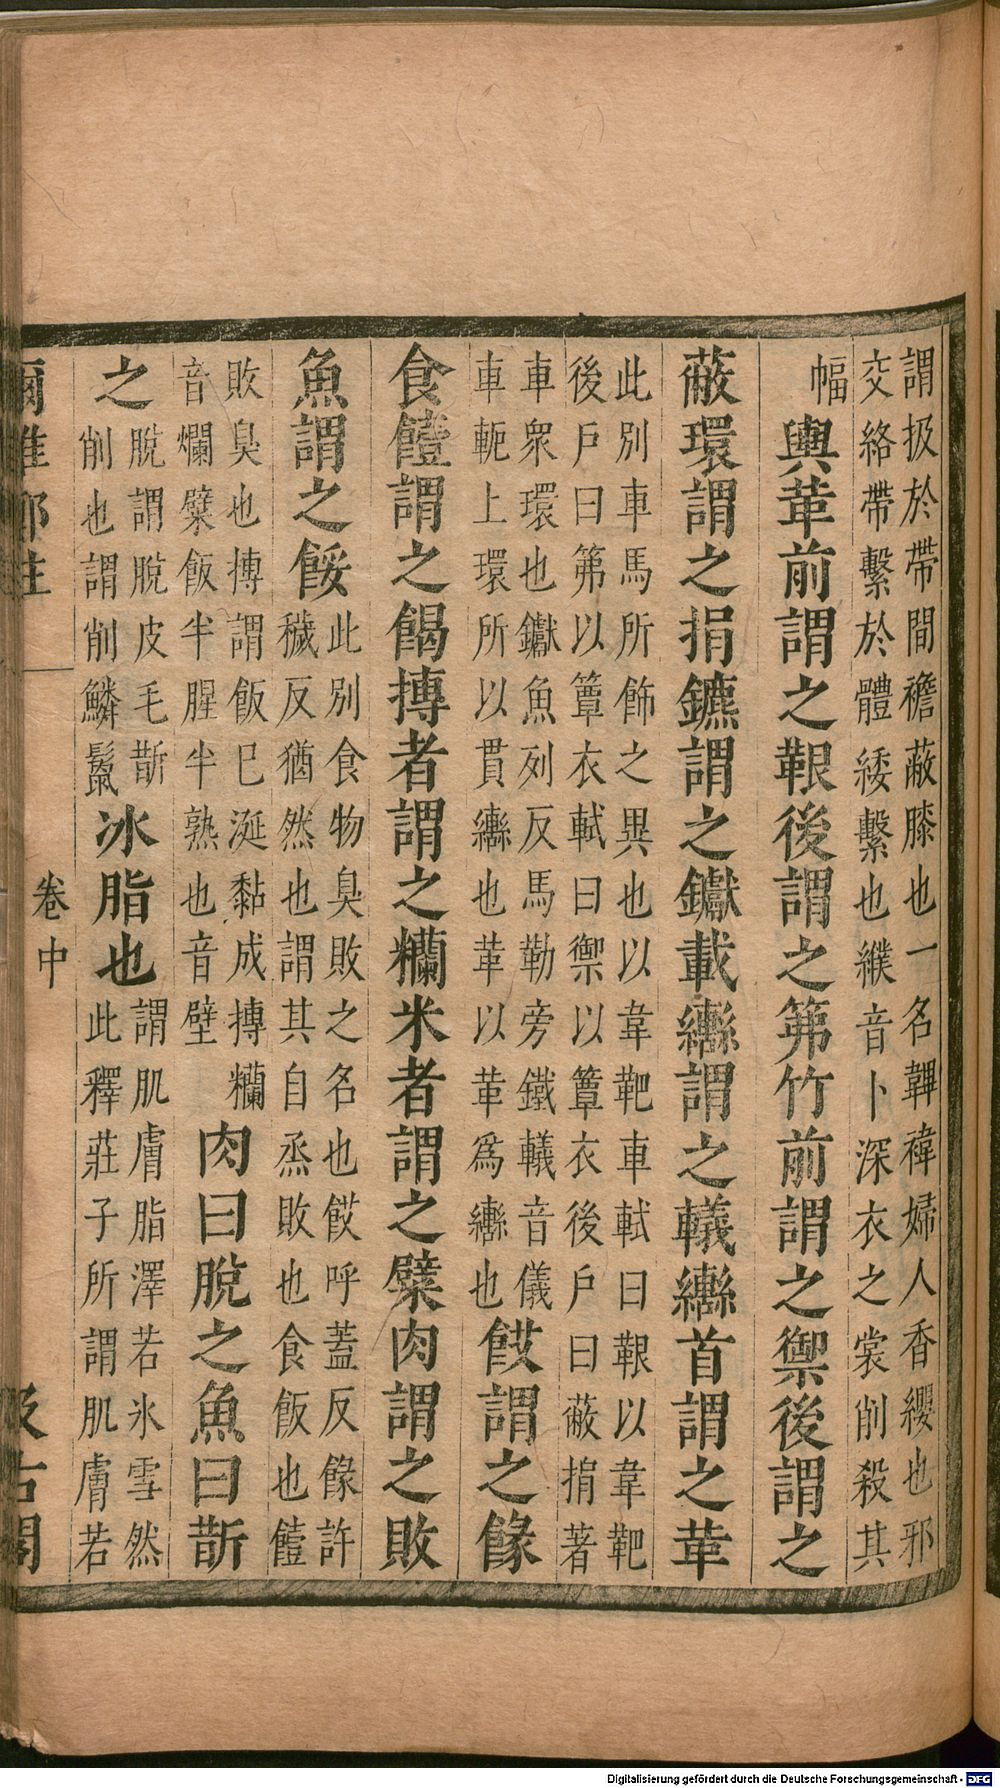 謂扱於帶間襜蔽膝也一名韠褘婦人香纓也邪
交絡帶繫於體緌繫也纀音卜深衣之裳削殺其
幅
輿革前謂之鞎後謂之笰竹前謂之禦後謂之
蔽環謂之捐鑣謂之钀載轡謂之轙轡首謂之革
此別車馬所飾之異也以韋靶車軾曰鞎以韋靶
後戶曰笰以簟衣軾曰禦以簟衣後戶曰蔽捐著
車衆環也钀魚列反馬勒旁鐵轙音儀
車軛上環所以貫轡也革以革爲轡也
餀謂之餯
食饐謂之餲摶者謂之糷米者謂之糪肉謂之敗
魚謂之餒
此別食物臭敗之名也餀呼蓋反餯許
穢反猶然也謂其自烝敗也食飯也饐
敗臭也摶謂飯巳涎黏成摶糷
音爛糪飯半腥半熟也音壁
肉曰脫之魚曰斮
之
脫謂脫皮毛斮
削也謂削鱗鬣
冰脂也
謂肌膚脂澤若氷雪然
此釋莊子所謂肌膚若
爾雅鄭註
卷中
汲古閣
Digitalisierung gefördert durch die Deutsche Forschungsgemeinschaft - DFG